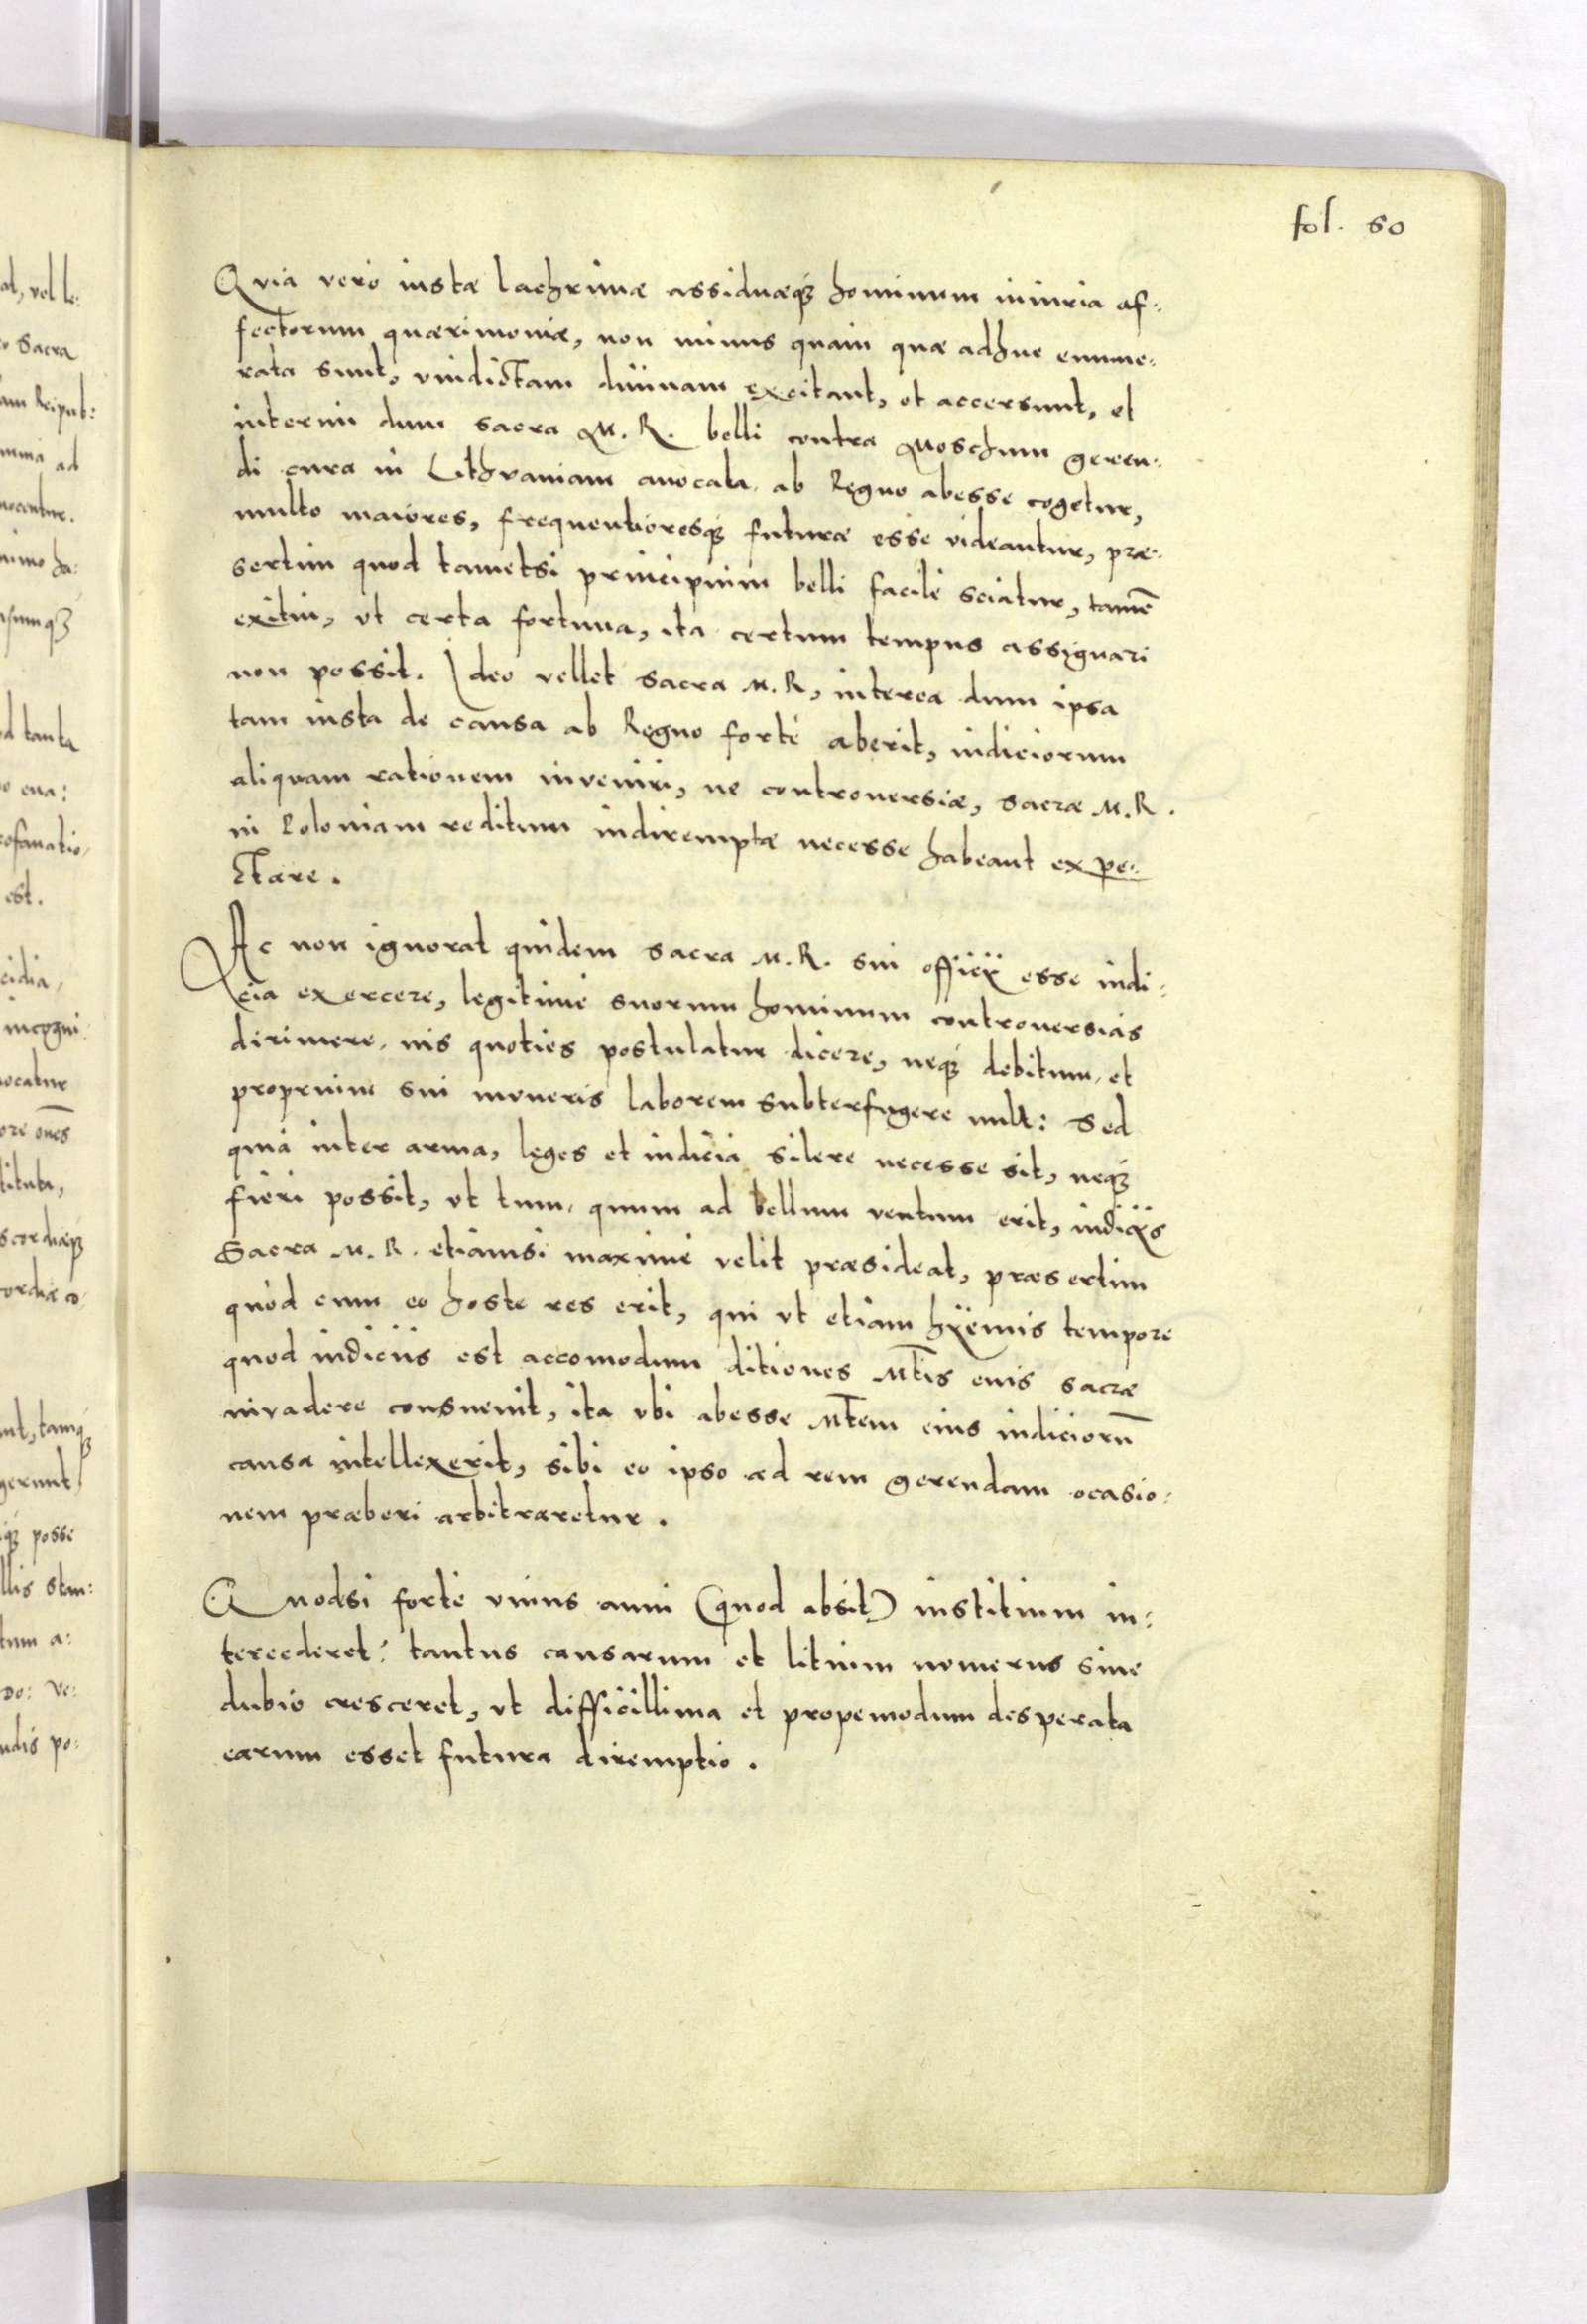 fol. 50
Qvia vero iustæ lachrimæ assiduæqꝫ hominum iniuria af:
fectorum quærimoniæ, non minus quam quæ adhuc enume:
rata sunt, vindictam diuinam excitant, et accersunt, et
interim dum sacra M. R. belli contra Moschum geren:
di cura in Lithvaniam auocata, ab Regno abesse cogetur,
multo maiores, frequentioresqꝫ futuræ esse videantur, præ:
sertim quod tametsi principium belli facile sciatur, tamē
exitui, vt certa fortuna, ita certum tempus assignari
non possit. Ideo vellet sacra M. R, interea dum ipsa
tam iusta de causa ab Regno forté aberit, iudiciorum
aliquam rationem inveniri, ne controuersiæ, sacræ M. R.
in Poloniam reditum indiremptæ necesse habeant expe:
ctare.
Ac non ignorat quidem sacra M. R. sui officij esse iudi:
cia exercere, legitimé suorum hominum controuersias
dirimere, ius quoties postulatur dicere, neqꝫ debitum, et
proprium sui muneris laborem subterfugere vult: Sed
quia inter arma, leges et iudicia silere necesse sit, neqꝫ
fieri possit, vt tum, quum ad bellum ventum erit, iudicijs
Sacra M. R. etiamsi maximé velit præsideat, præsertim
quòd cum eo hoste res erit, qui vt etiam hÿemis tempore
quod iudiciis est accomodum ditiones Mtis euis sacræ
invadere consueuit, ita vbi abesse Mtem eius iudiciorū
causa intellexerit, sibi eo ipso ad rem gerendam ocasio:
nem præberi arbitraretur.
Quodsi forté vnius anni (quod absit) iustitium in:
tercederet: tantus causarum et litium numerus sine
dubio cresceret, vt difficillima et propemodum desperata
earum esset futura diremptio.